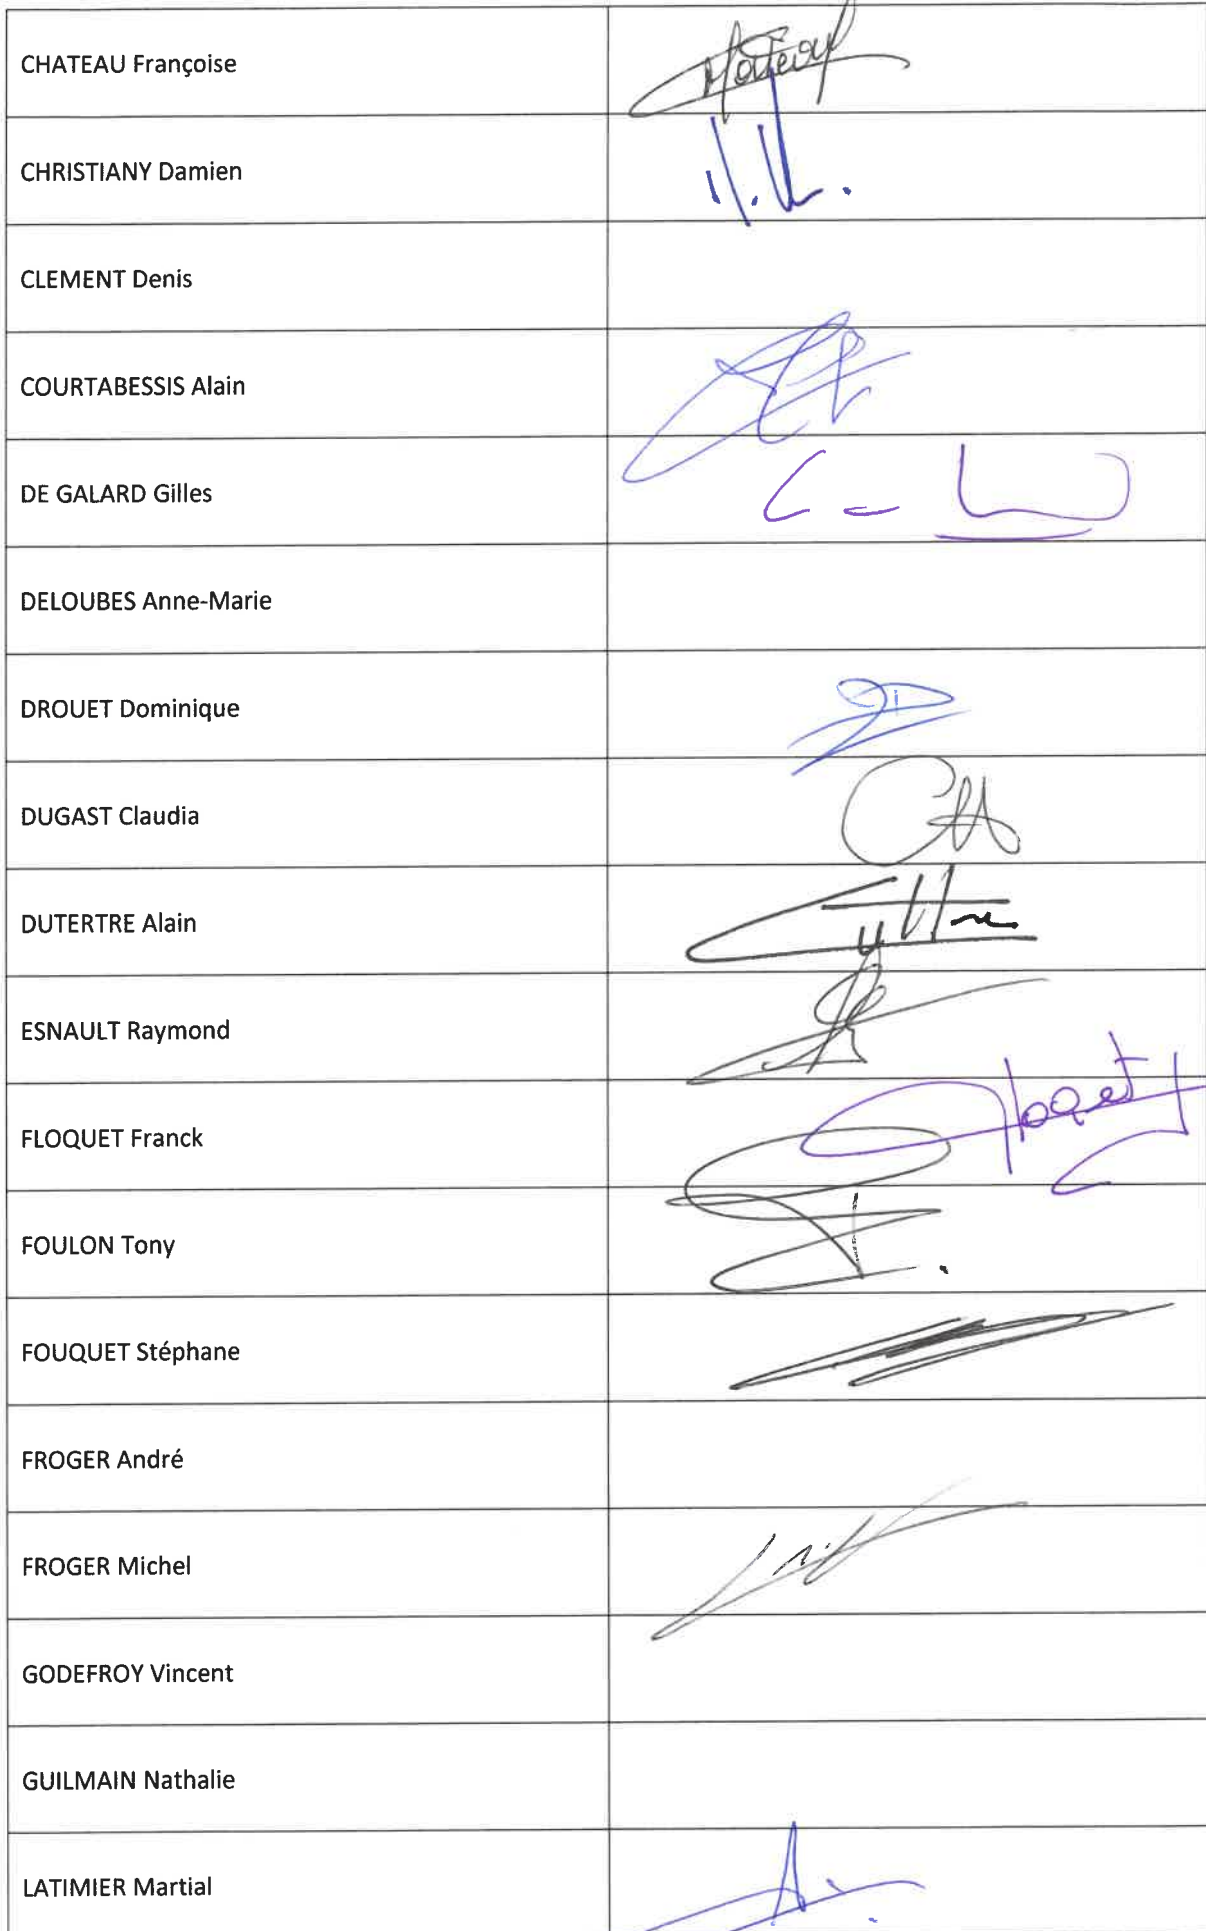 CHATEAU Françoise
CHRISTIANY Damien
CLEMENT Denis
COURTABESSIS Alain
DE GALARD Gilles
DELOUBES Anne-Marie
DROUET Dominique
DUGAST Claudia
DUTERTRE Alain
ESNAULT Raymond
FLOQUET Franck
floquet
FOULON Tony
FOUQUET Stéphane
FROGER André
FROGER Michel
GODEFROY Vincent
GUILMAIN Nathalie
LATIMIER Martial